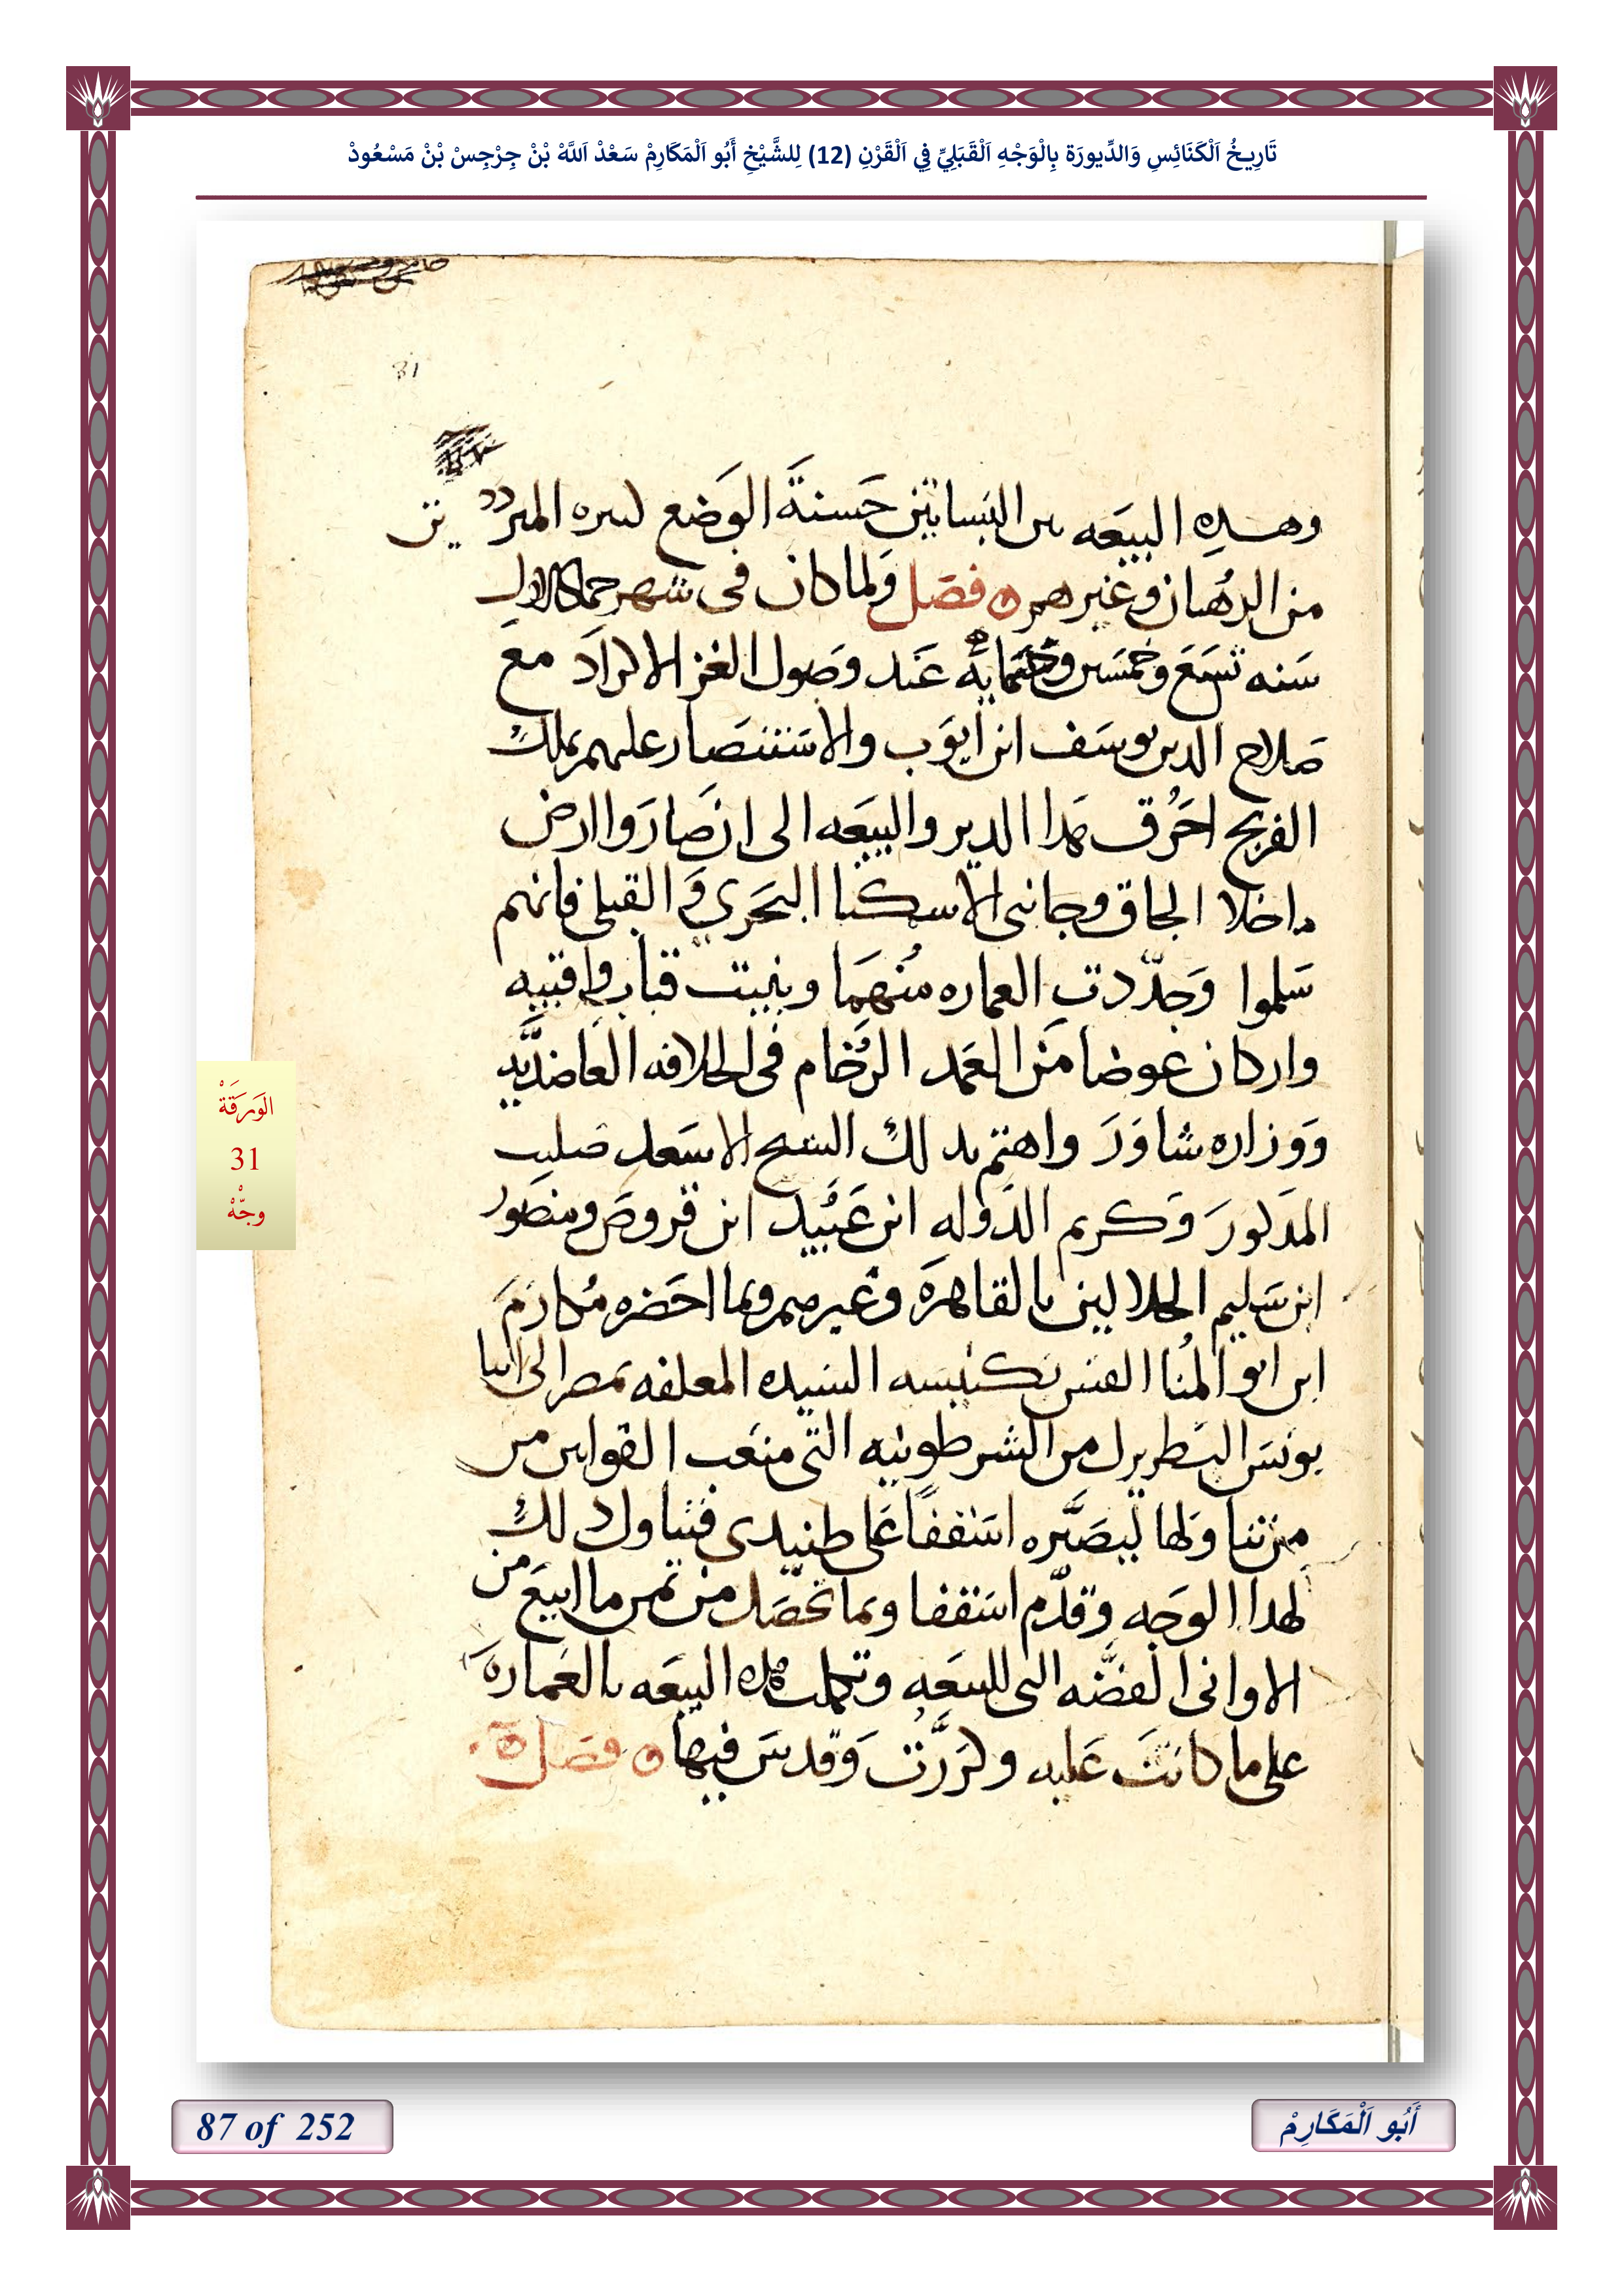 تَارِيخُ اَلْكَنَائِسِ وَالدِّيورَة بِالْوَجْهِ اَلْقَبَلِيِّ فِي اَلْقَرْنِ (12) لِلشَّيْخِ أَبُو اَلْمَكَارِمْ سَعْدْ اَللَّهْ بْنْ جِرْجِسْ بْنْ مَسْعُودْ
31
وهده البيعَه بين البَساتين حَسنةَ الوَضع كتيره المتردد ين
من الرُهبان وغيرهم فصَل ولما كان فى شهر جماد الاول
سَنه تسَعَ وخمسَين وخمَسمايه عَند وصَول الغز الاكراد مع
صَلاح الدين يوسَف ابن ايوَب والاسَتنصَار عليهم بملك
الفرنج احَرُق هَدا الدير والبيعَه الى ان صَارَوا ارض
ماخلا الطاق وجانبى الاسكنا البَحَري وَ القبلى فانهم
سَلموا وَجدّدت العماره منُهمَا وبنيت قباب واقبيه
واركان عوضا من العمَد الرُخام فى الخلافه العاضديَّه
وَوزاره شاوَرَ واهتم بدلك الشيخ الاسَعد صليب
المدَكورَ وَكريم الدَوله ابن عَبُيد ابن قروصَ ومنصَور
ابن سَليم الجلاليين بالقاهرَة وغيرهم وبما احَضره مُكارم
ابن ابو المُنا القس بكنيسه السَيده المعلقه بمصر الى انبا
يونسَ البَطريرك من الشرطونيه التى منعَت القوانين من
من تناولها ليصَيَّره اسَقفاً عَلى طنبدى فتناول دلك
لهدا الوجَه وقدّم اسَقفا وبما تحَصَل من ثمن ما ابيعَ من
الاوانى الفضَّه التى للبيعَه وتكملت هده البيعَه بالعَمارة
على ما كانتَ عَليه وكَرَّرَت وَقدسَ فيها فصَل
الوَرَقَةْ
31
وجّهْ
87 of 252
أَبُو اَلْمَكَارِمْ